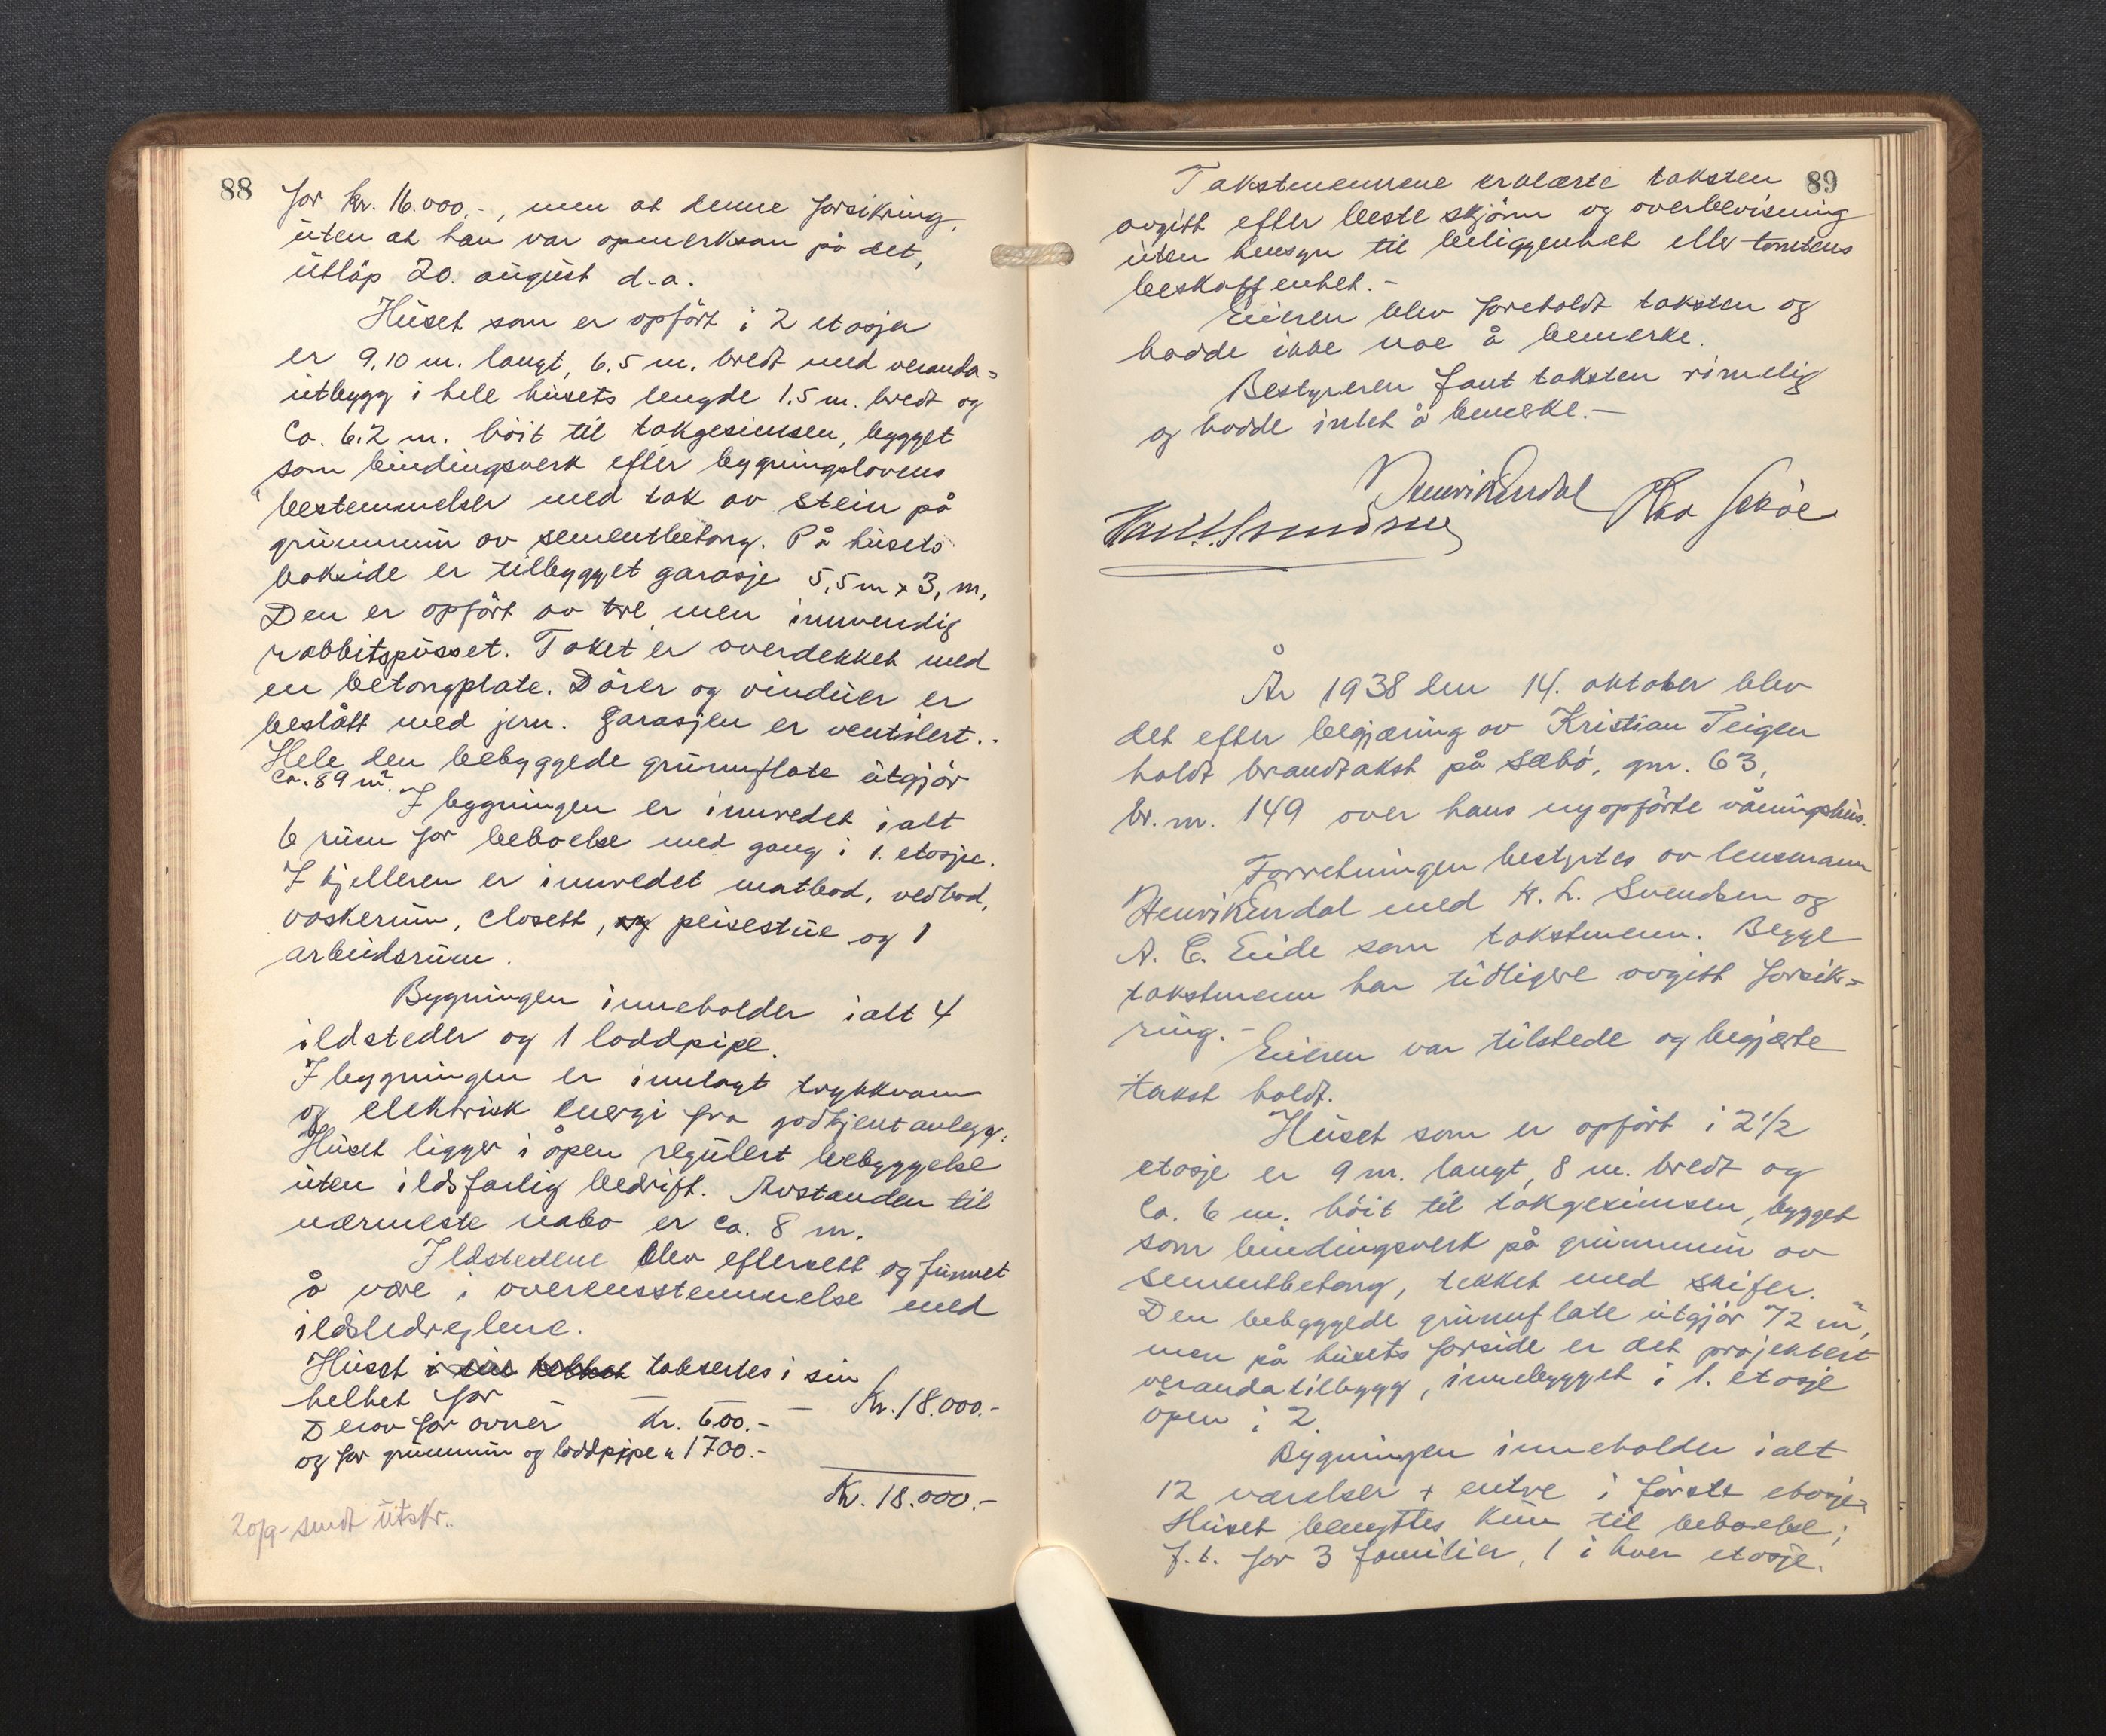 88
for kr. 16.000.-, men at denne forsikring,
uten at han var opmerksom på det,
utløp 20. august d.a.
Huset som er opført i 2 etasjer
er 9,10 m. langt, 6.5 m. bredt med veranda=
utbygg i hele husets lengde 1.5 m. bredt og
ca. 6.2 m. höit til takgesimsen, bygget
som bindingsverk efter bygningslovens
bestemmelser med tak av stein på
grunnmur av sementbetong. På husets
bakside er tilbygget garasje 5,5 m x 3, m.
Den er opført av tre, men innvendig
rabbitspusset. Taket er overdekket med
en betongplate. Dører og vinduer er
beslått med jern. Garasjen er ventilert..
Hele den bebyggede grunnflate utgjør
ca. 89 m².
I bygningen er innredet ialt
6 rum for beboelse med gang i 1. etasje.
I kjelleren er innredet matbod, vedbod,
vaskerum, closett, og peisestue og 1
arbeidsrum.
Bygningen inneholder ialt 4
ildsteder og 1 loddpipe.
I bygningen er innlagt trykkvann
og elektrisk energi fra godkjent anlegg.
Huset ligger i åpen regulert bebyggelse
uten ildsfarlig bedrift. Avstanden til
nærmeste nabo er ca. 8 m.
Ildstedene blev eftersett og funnet
å være i overensstemmelse med
ildstedreglene.
Huset i sin helhet taksertes i sin
helhet for — — Kr. 18.000.-
Derav for ovner Kr. 600.-
og for grunnmur og loddpipe " 1700.-
Kr. 18.000.-
20/9- sendt utskr..
89
Takstmennene erklærte taksten
avgitt efter beste skjønn og overbevisning
uten hensyn til beliggenhet eller tomtens
beskaffenhet.-
Eieren blev foreholdt taksten og
hadde ikke noe å bemerke.
Bestyreren fant taksten rimelig
og hadde intet å bemerke.-
Henrik Endal
År 1938 den 14. oktober blev
det efter begjæring av Kristian Teigen
holdt brandtakst på Sæbø, gnr. 63,
br. nr. 149 over hans nyopførte våningshus.
Forretningen bestyrtes av lensmann
Henrik Endal med H. L. Svendsen og
A. C. Eide som takstmenn. Begge
takstmenn har tidligere avgitt forsik=
ring.-
Eieren var tilstede og begjærte
takst holdt.
Huset som er opført i 2 1/2
etasje er 9 m. langt, 8 m. bredt og
ca. 6 m. höit til takgesimsen, bygget
som bindingsverk på grunnmur av
sementbetong, tekket med skifer.
Den bebyggede grunnflate utgjør 72 m²,
men på husets forside er det projektert
verandatilbygg, innebygget i 1. etasje
åpen i 2.
Bygningen inneholder ialt
12 værelser + entre i første etasje.
Huset benyttes kun til beboelse;
f.t. for 3 familier, 1 i hver etasje.